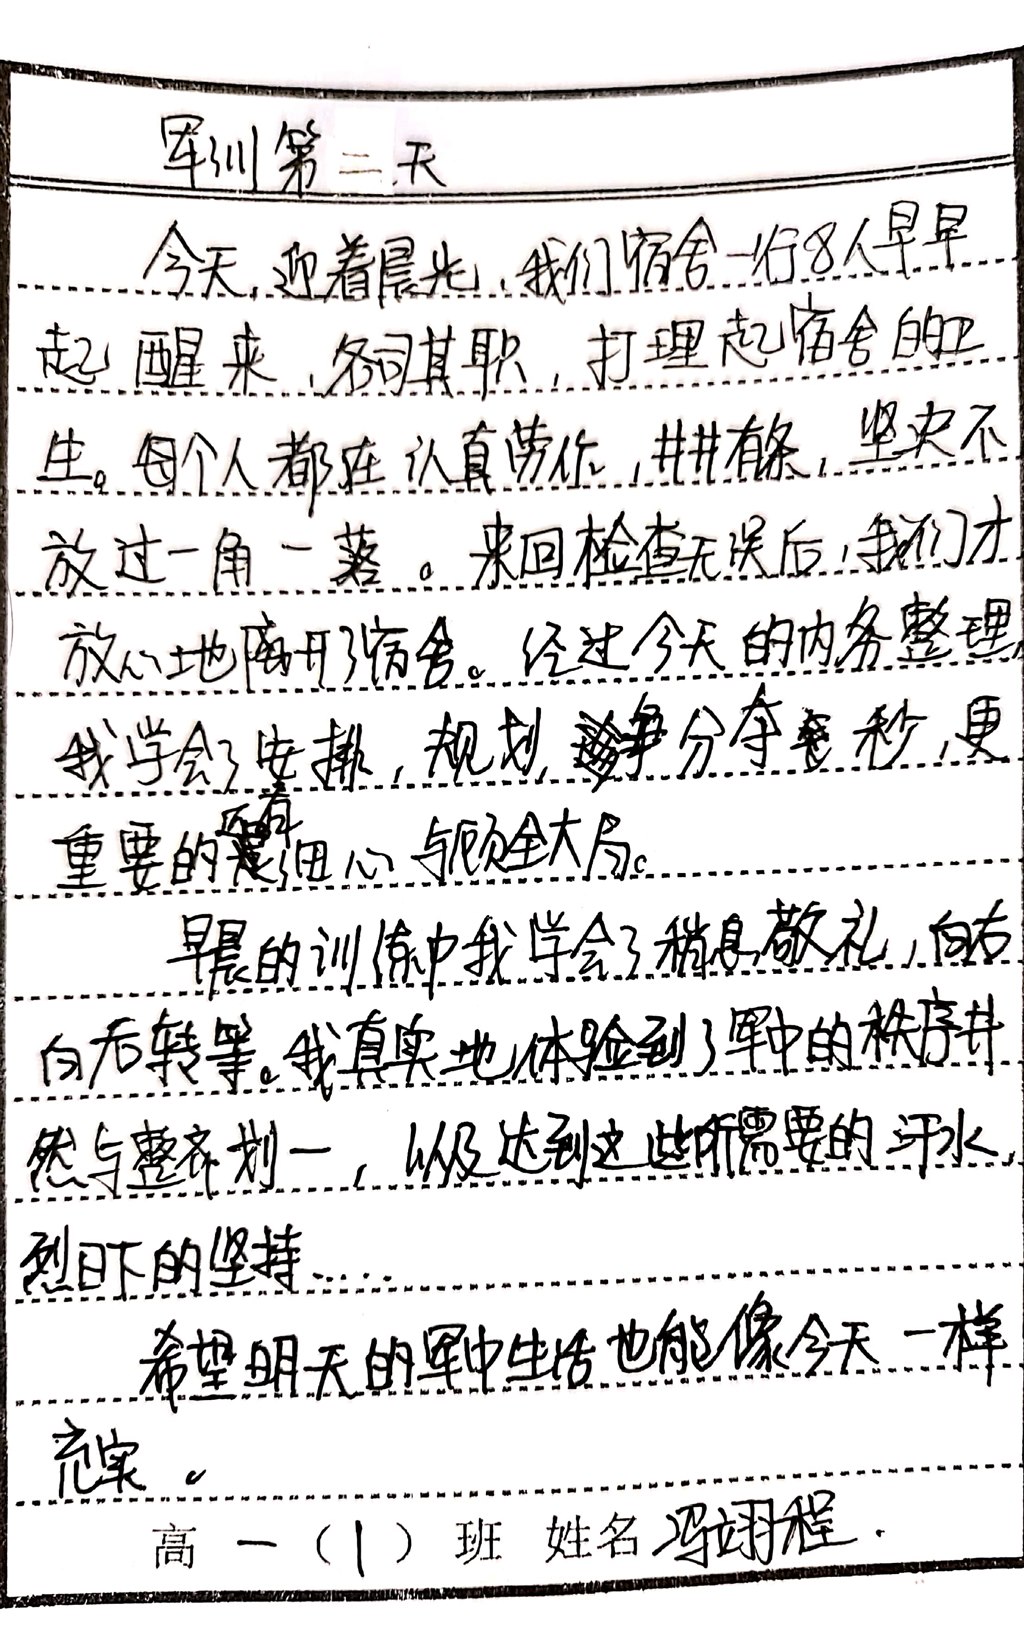 军训第二天
今天,迎着晨光,我们宿舍一行8人早早
起醒来,各司其职,打理起宿舍的卫
生。每个人都在认真劳作,井井有条,坚决不
放过一角一落。来回检查无误后,我们才
放心地离开了宿舍。经过今天的内务整理,
我学会了安排,规划,争分夺秒,更
重要的还有细心与顾全大局。
早晨的训练中我学会了稍息敬礼,向右
向后转等。我真实地体验到了军中的秩序井
然与整齐划一,以及达到这些所需要的汗水,
烈日下的坚持……
希望明天的军中生活也能像今天一样
充实。
高一(1)班 姓名冯翊程.